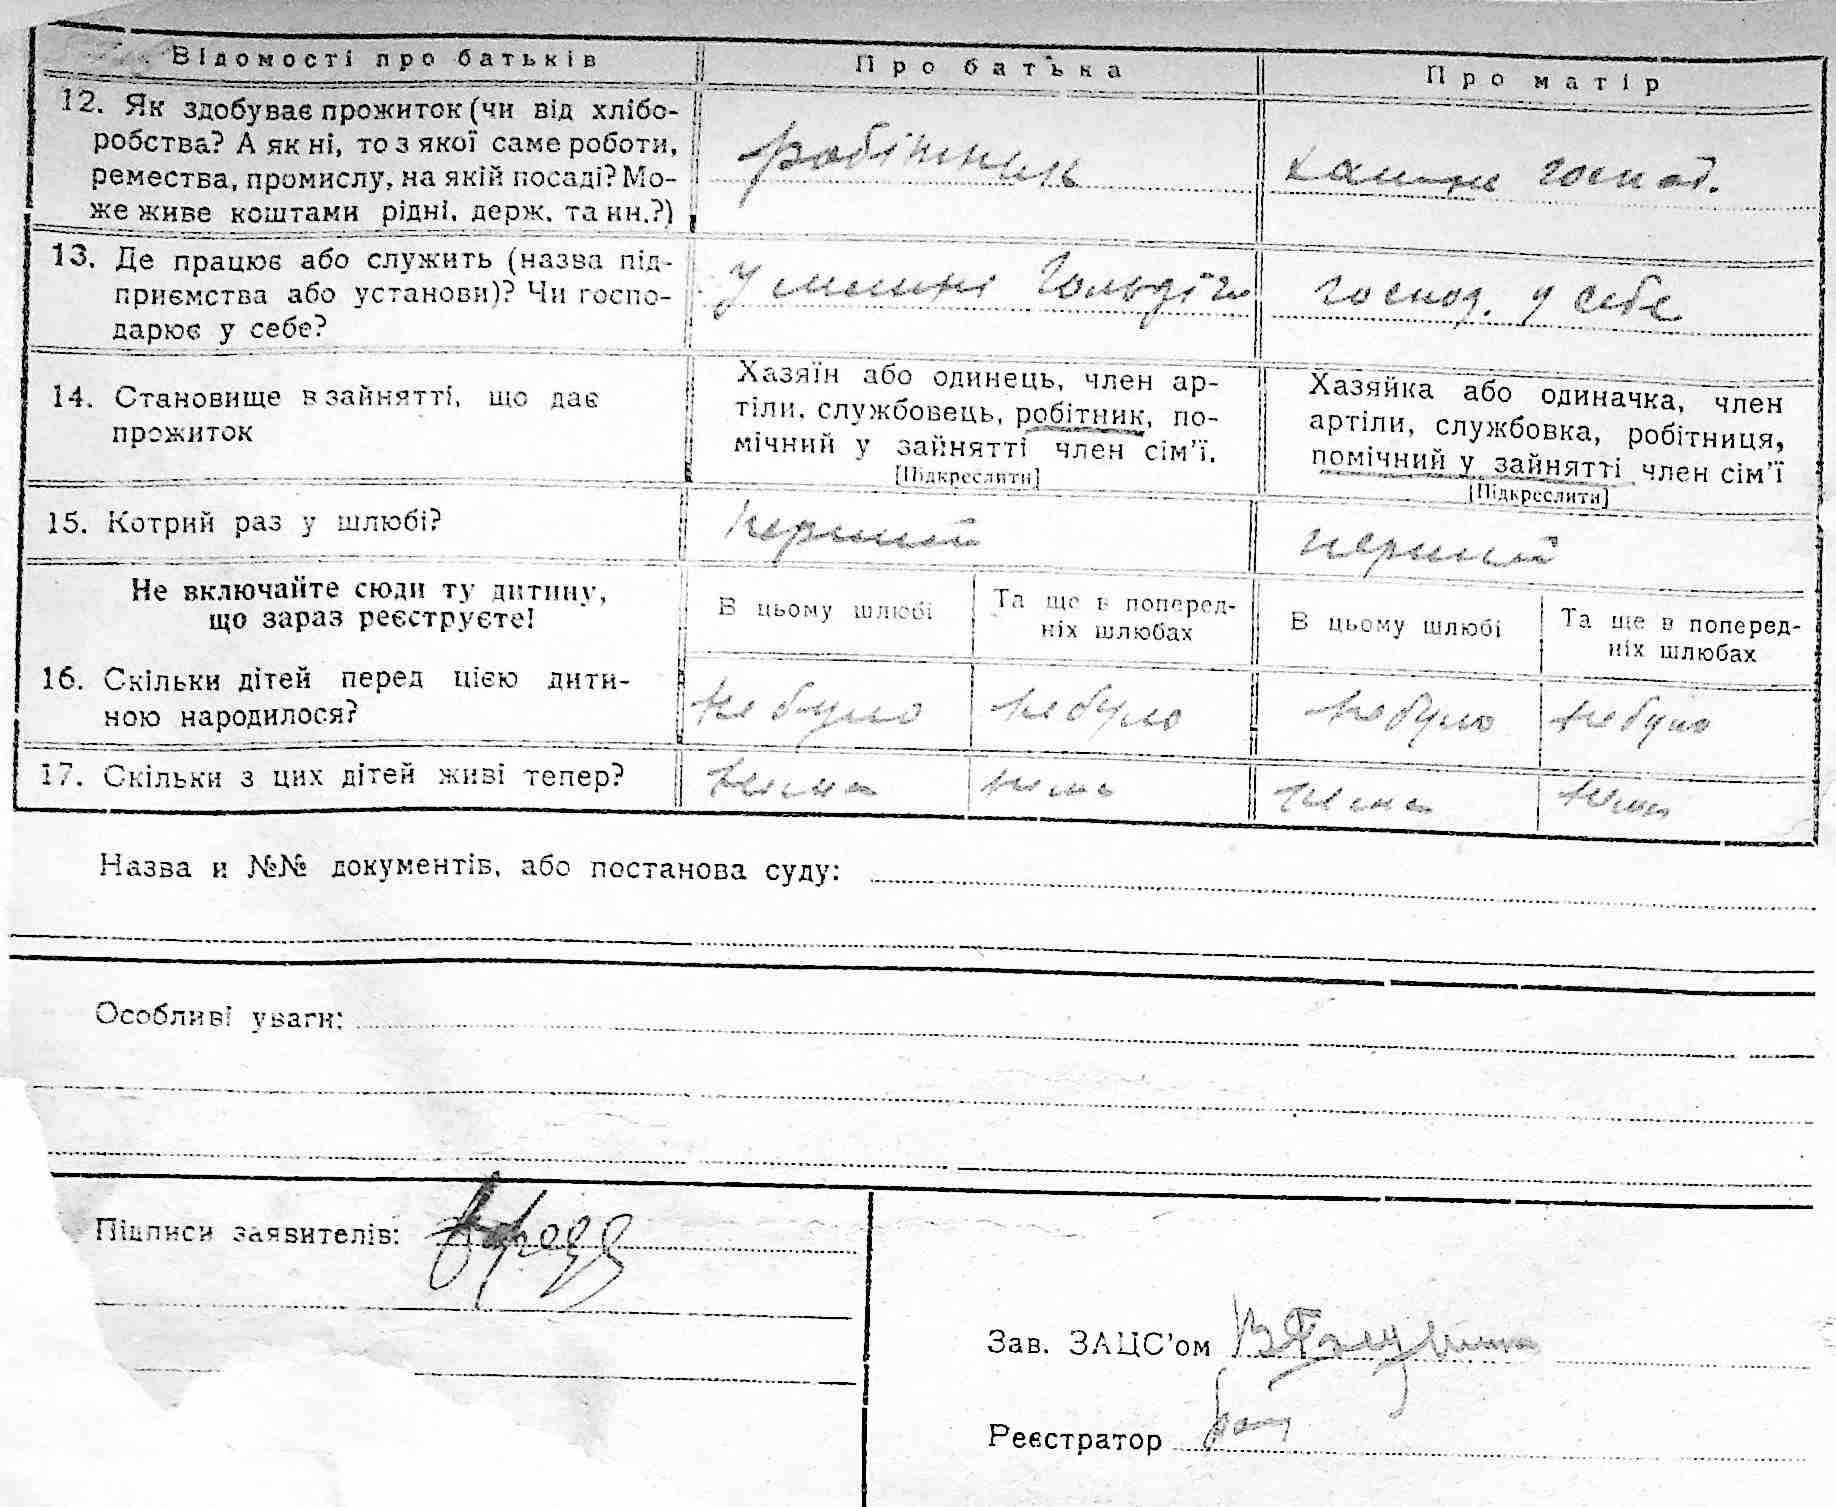 Відомості про батьків
Про батька
Про матір
12. Як здобуває прожиток (чи від хлібо-
робства? А як ні, то з якої саме роботи,
ремества, промислу, на якій посаді? Мо-
же живе коштами рідні, держ. та ин.?)
робітник
госпо д.
13. Де працює або служить (назва під-
приємства або установи)? Чи госпо-
дарює у себе?
у
господ. у себе
14. Становище в зайнятті, що дає
прожиток
Хазяїн або одинець, член ар-
тіли, службовець, робітник, по-
мічний у зайнятті член сім'ї.
[Підкреслити]
Хазяйка або одиначка, член
артіли, службовка, робітниця,
помічний у зайнятті член сім'ї
[Підкреслити]
15. Котрий раз у шлюбі?
перший
перший
Не включайте сюди ту дитину,
що зараз реєструєте!
В цьому шлюбі
Та ще в поперед-
ніх шлюбах
В цьому шлюбі
Та ще в поперед-
ніх шлюбах
16. Скільки дітей перед цією дити-
ною народилося?
не було
не було
не було
не було
17. Скільки з цих дітей живі тепер?
нема
нема
нема
нема
Назва и №№ документів, або постанова суду:
Особливі уваги:
Підписи заявителів:
Зав. ЗАЦС'ом
Реєстратор